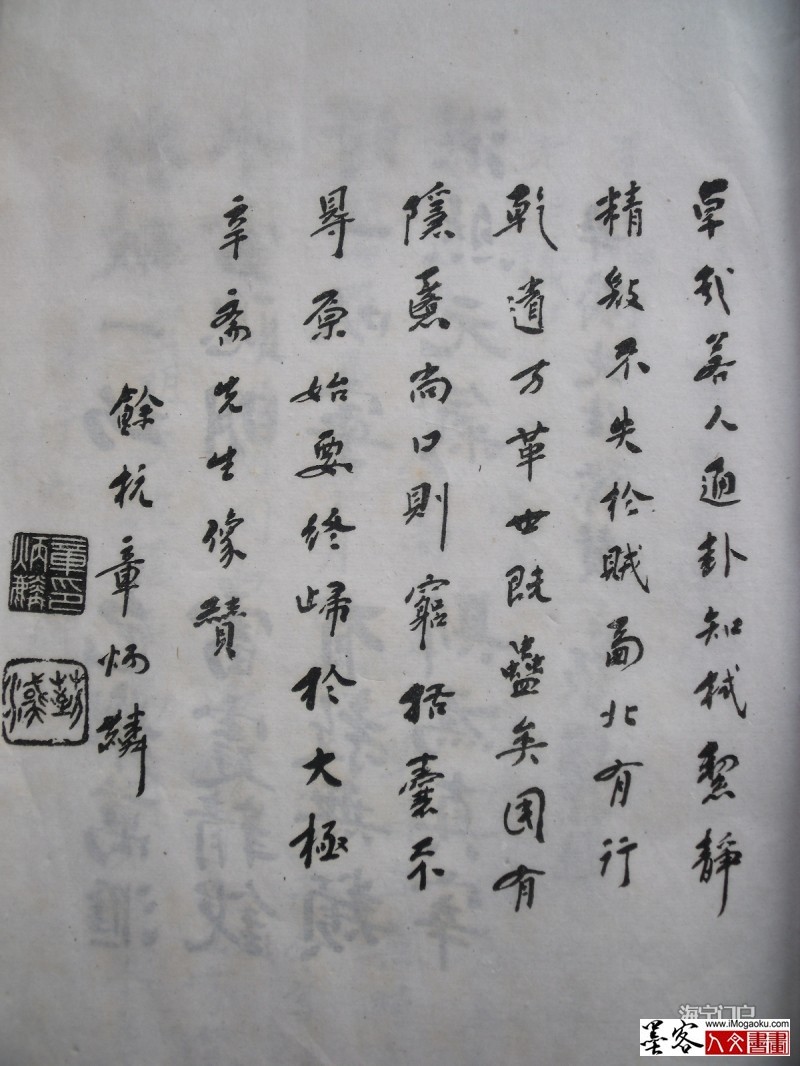 卓哉若人通卦知械絜靜
精微不失於賊啚北有行
乾道乃革世既蠱矣有
隱慝尚口則窮括囊不
㝵原始要終歸於大極
辛齋先生像贊
餘杭章炳麟
章印炳麟
菿漢
海宁门户
墨客
www.iMogaoku.com
人文書畫